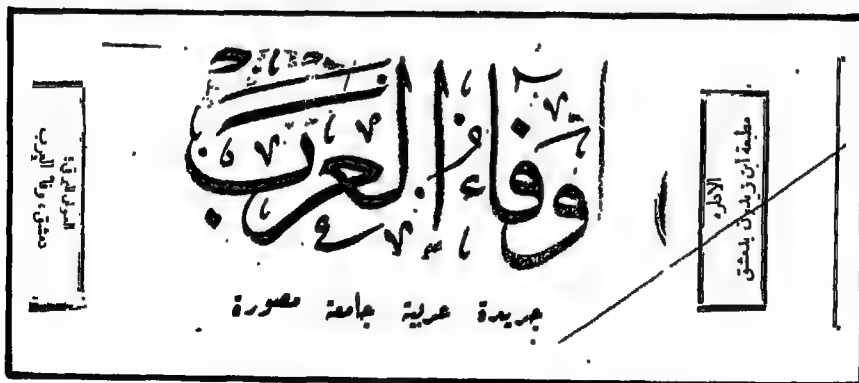 وفاء العرب
جريدة عربية جامعة مصورة
الادارة
مطبعة ابن زيدون بدمشق
دمشق: وفاء العرب